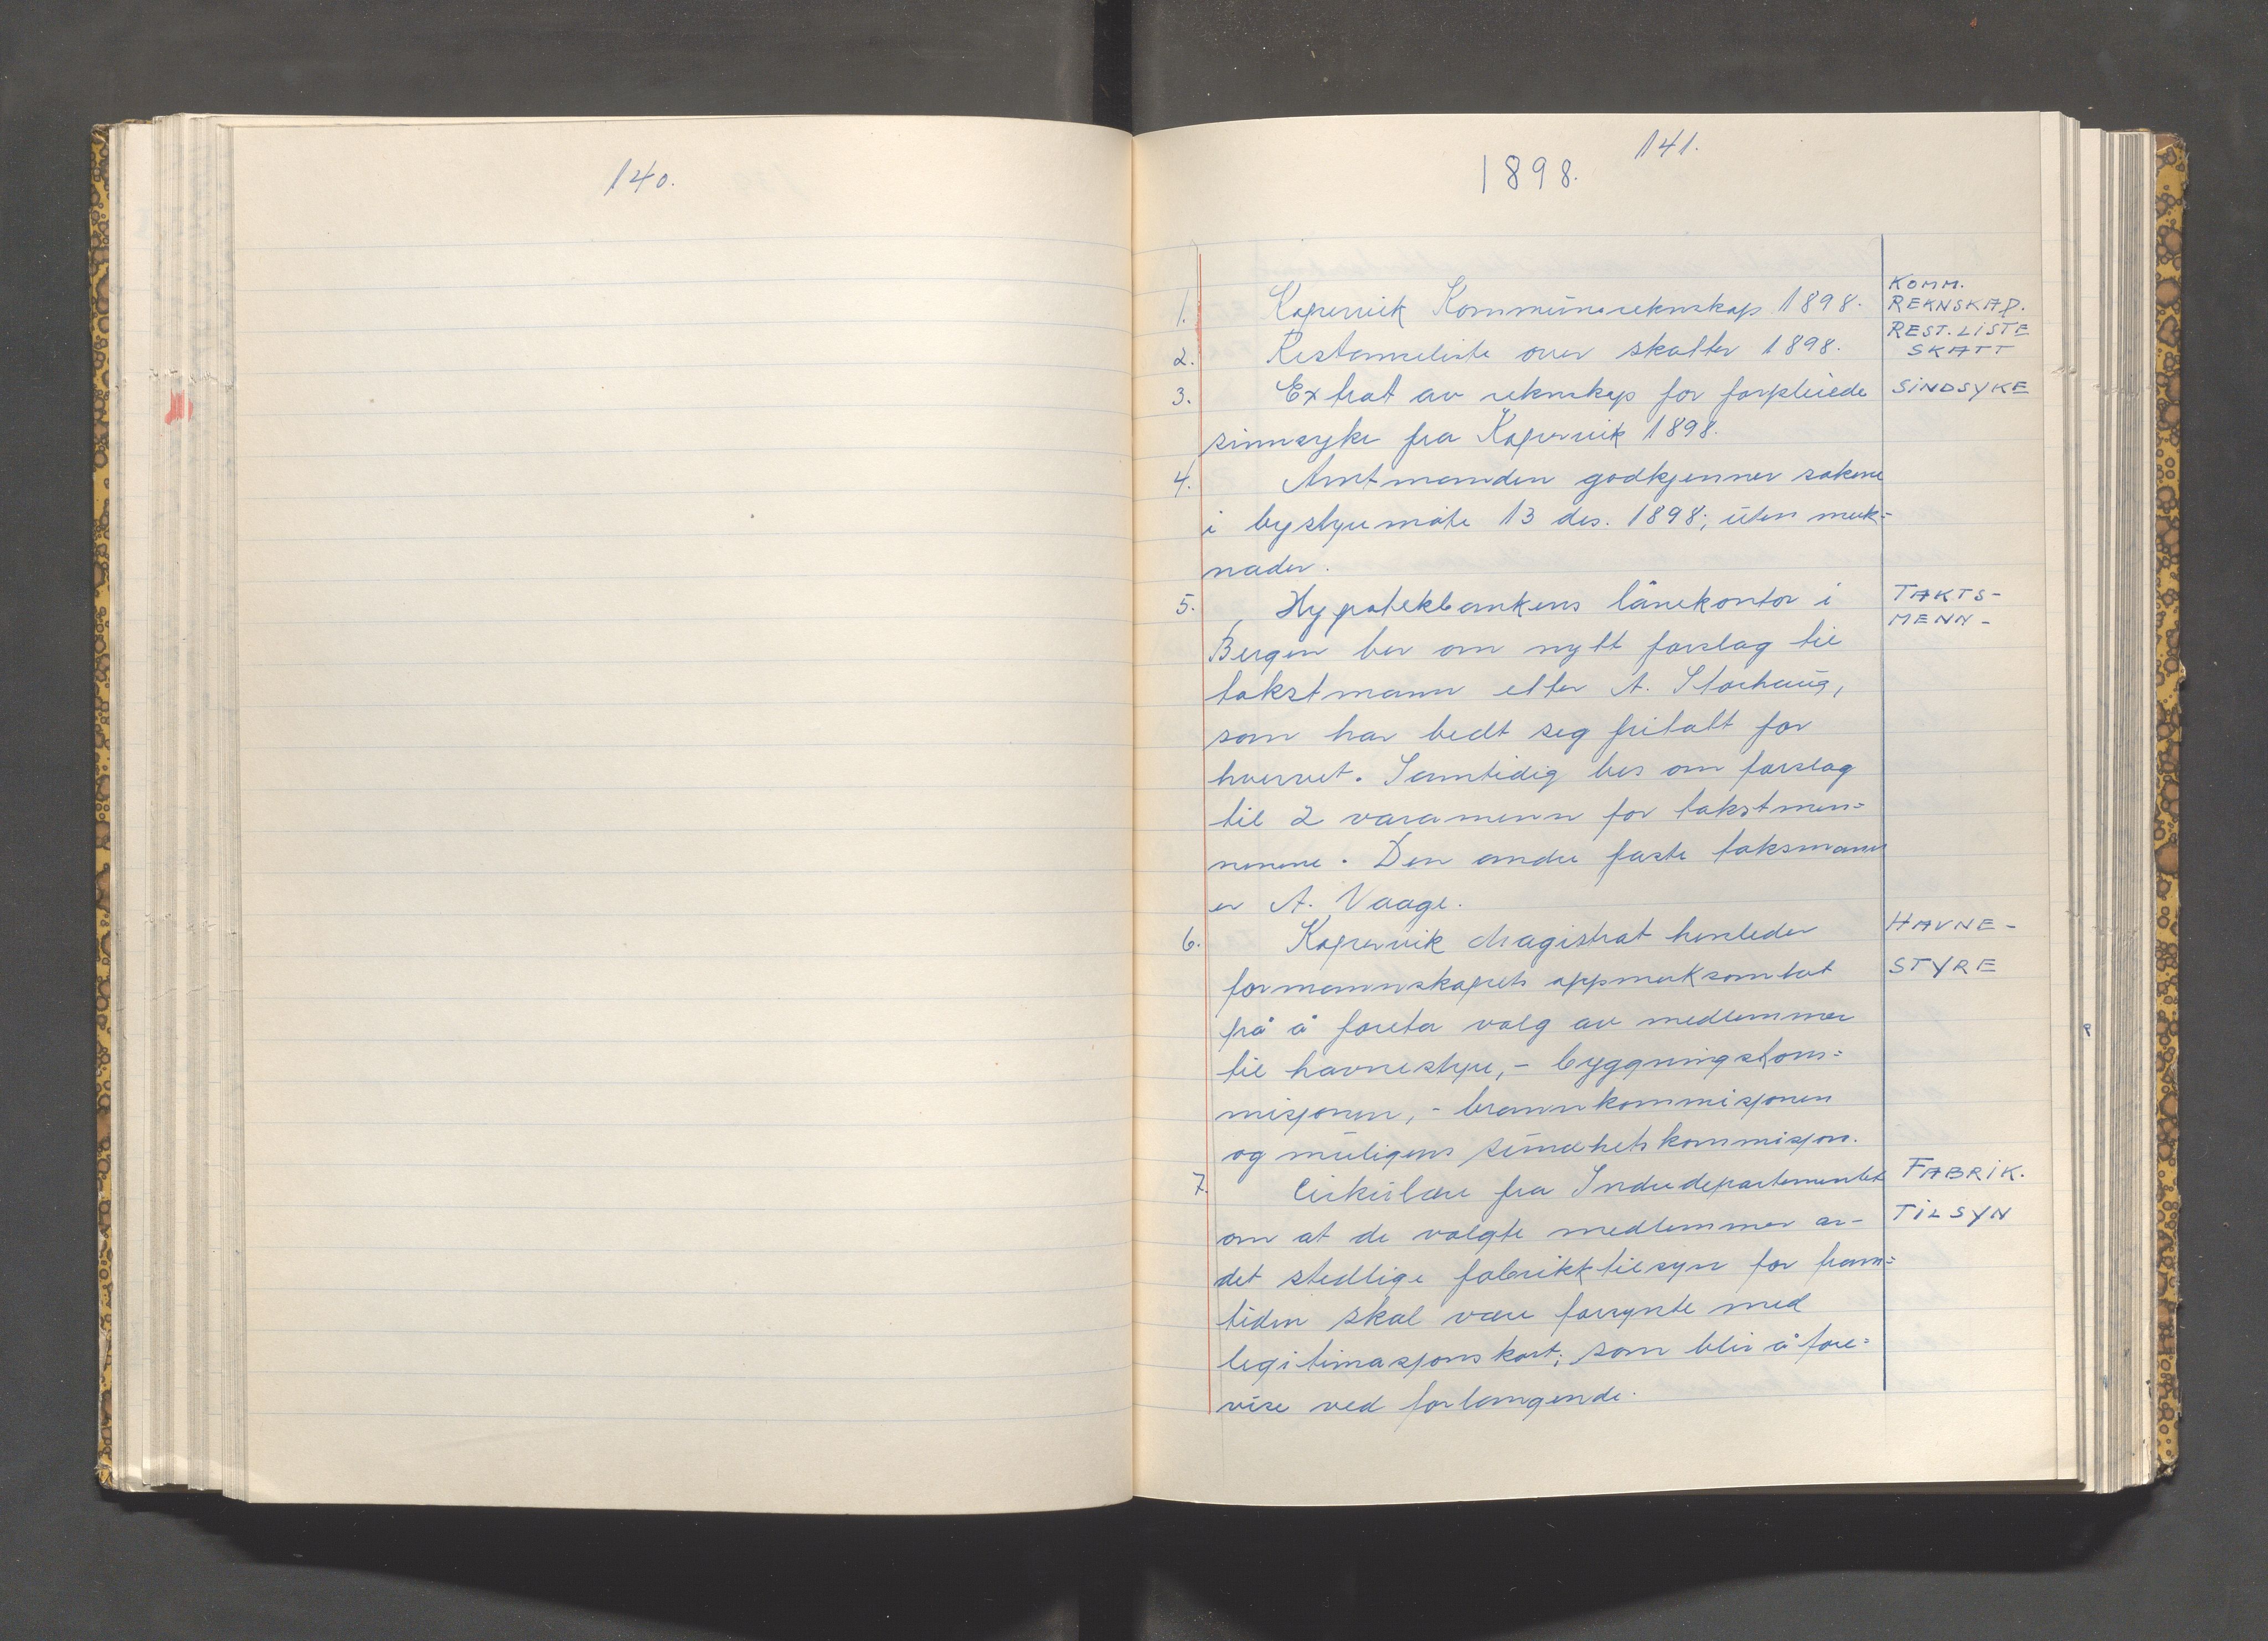 140.
141.
1898.
1. Kopervik Kommunereknskap 1898. KOMM. REKNSKAP.
2. Restanseliste over skatter 1898. REST. LISTE SKATT
3. Extrat av reknskap for forpleiede SINDSYKE
sinnsyke fra Kopervik 1898.
4. Amtmanden godkjenner sakene
i bystyremøte 13 des. 1898; uten merk=
nader.
5. Hypotekbankens lånekontor i TAKTS-
Bergen ber om nytt forslag til MENN-
takstmann etter A. Storhaug,
som har bedt seg fritatt for
hvervet. Samtidig bes om forslag
til 2 varamenn for takstmen=
nenene. Den andre faste taksmann
er A. Vaage.
6. Kopervik Magistrat henleder HAVNE-
formannskapets oppmerksomhet STYRE
på å foreta valg av medlemmer
til havnestyre, - bygningskom=
misjonen, - brannkommisjonen
og muligens sundhetskommisjon.
7. Cirkulære fra Indredepartementet FABRIK.
om at de valgte medlemmer av- TILSYN
det stedlige fabrikktilsyn for fram=
tiden skal være forsynte med
legitimasjonskort; som blir å fore=
vise ved forlangende.